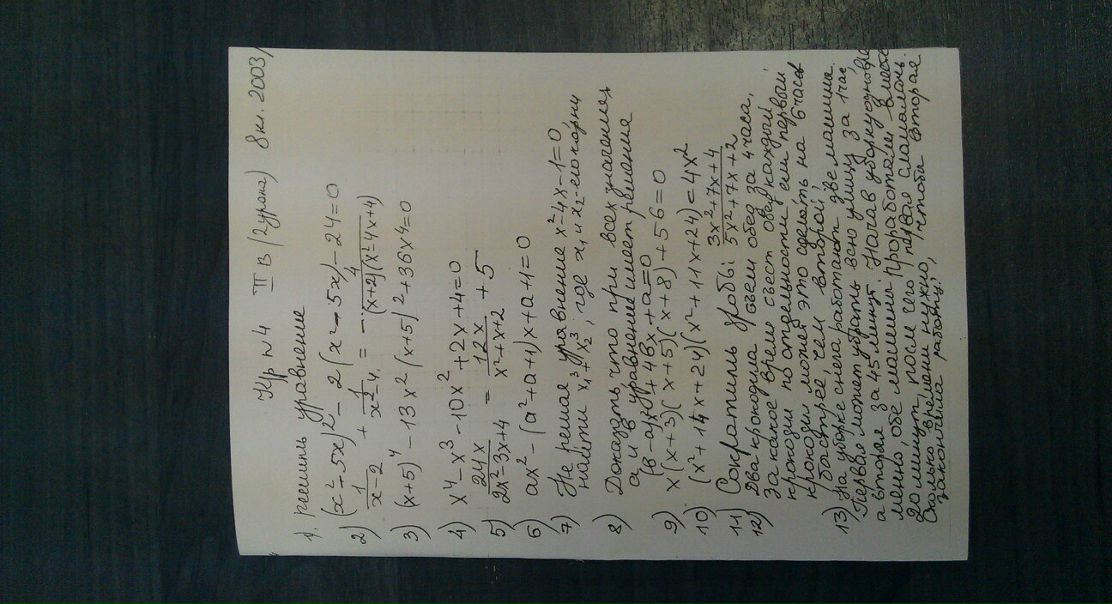 Кр N 4 III В (2 урока) 8 кл. 2003
1) решить уравнение
(x²-5x)² - 2(x²-5x) - 24=0
2) 1/(x-2) + 1/(x²-4) = - 4/((x+2)(x²-4x+4))
3) (x+5)⁴ - 13x²(x+5)² + 36x⁴=0
4) x⁴-x³-10x²+2x+4=0
5) 24x/(2x²-3x+4) = 12x/(x²+x+2) + 5
6) ax²-(a²+a+1)x+a+1=0
7) Не решая уравнение x²-4x-1=0,
найти x₁³+x₂³, где x₁ и x₂ - его корни
8) Доказать что при всех значениях
а и в уравнение имеет решение
(в-а)x²+4вx+а=0
9) x(x+3)(x+5)(x+8)+56=0
10) (x²+14x+24)(x²+11x+24)=4x²
11) Сократить дробь: (3x²+7x+4)/(5x²+7x+2)
12) Два крокодила съели обед за 4 часа,
за какое время съест обед каждый
крокодил по отдельности, если первый
крокодил может это сделать на 6 часов
быстрее, чем второй.
13) На уборке снега работают две машины.
Первая может убрать всю улицу за 1 час,
а вторая за 45 минут. Начав уборку одновре
менно, обе машины проработали вместе
20 минут, после чего первая сломалась.
Сколько времени нужно, чтобы вторая
закончила работу?